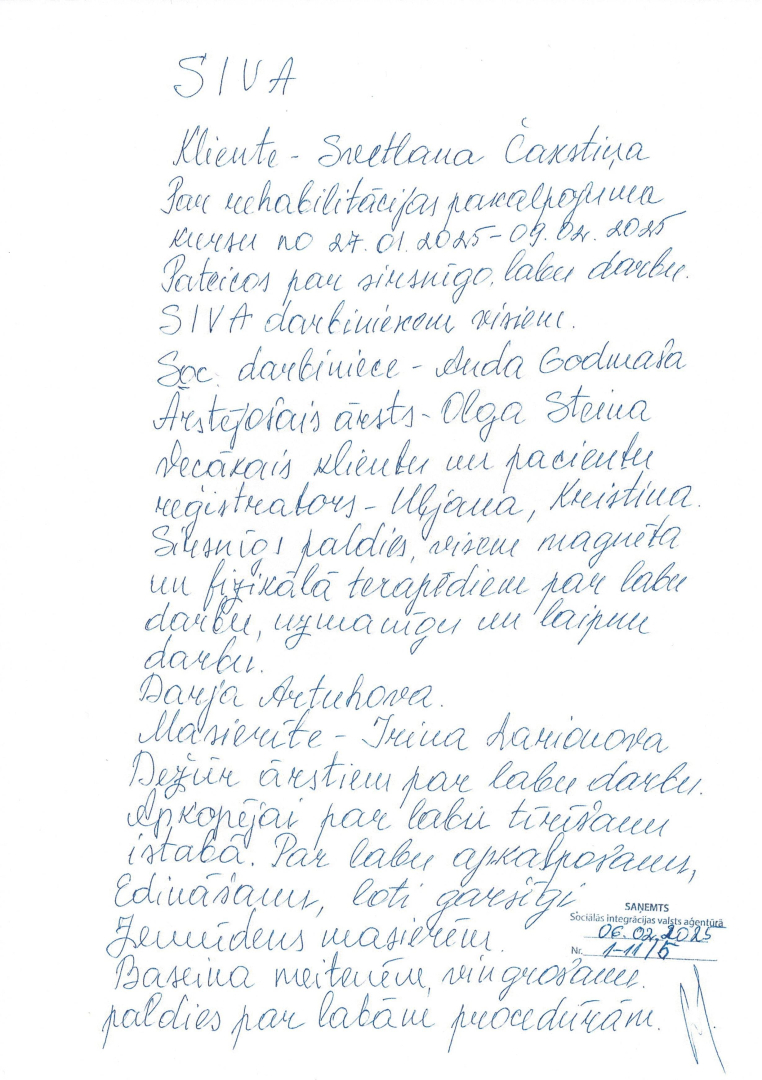 SIVA
Kliente - Svetlana Čakstiņa
Par rehabilitācijas pakalpojuma
kursu no 27.01.2025-09.02.2025
Pateicos par sirsnīgo, labu darbu.
SIVA darbiniekem visiem.
Soc. darbiniece - Anda Godmaša
Ārstējošais ārsts - Olga Steina
Vecākais klientu un pacientu
reģistrators - Uljana, Kristina.
Sirsnīgs paldies, visem magnēta
un fizikālā terapēdiem par labu
darbu, uzmanīgu un laipnu
darbu.
Darja Artuhova.
Masierīte - Irina Larionova
Dežūr ārstiem par labu darbu.
Apkopējai par labu tīrīšanu
istabā. Par labu apkalpošanu,
Edināšanu, loti garsīgi
SAŅEMTS
Sociālās integrācijas valsts aģentūrā
06.02.2025
Nr. 1-11/5
Zemūdens masierēm.
Baseina meitenēm, vingrošanu.
paldies par labām procedūrām.